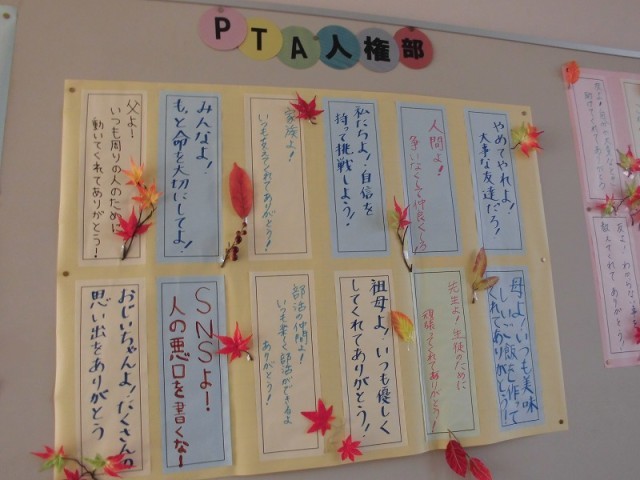 PTA人権部
やめてやれよ!
大事な友達だろ!
人間よ!
争いなくして仲良くしろ
私たちよ!自信を
持って挑戦しよう!
家族よ!
いつも支えてくれてありがとう!
みんなよ!
もっと命を大切にしてよ!
父よ!
いつも周りの人のために
動いてくれてありがとう!
母よ!いつも美味
しいご飯を作って
くれてありがとう!
先生よ!生徒のために
頑張ってくれてありがとう!
祖母よ!いつも優しく
してくれてありがとう!
部活の仲間よ!
いつも楽しく部活ができるよ
ありがとう!
SNSよ!
人の悪口を書くな!
おじいちゃんよ!たくさんの
思い出をありがとう